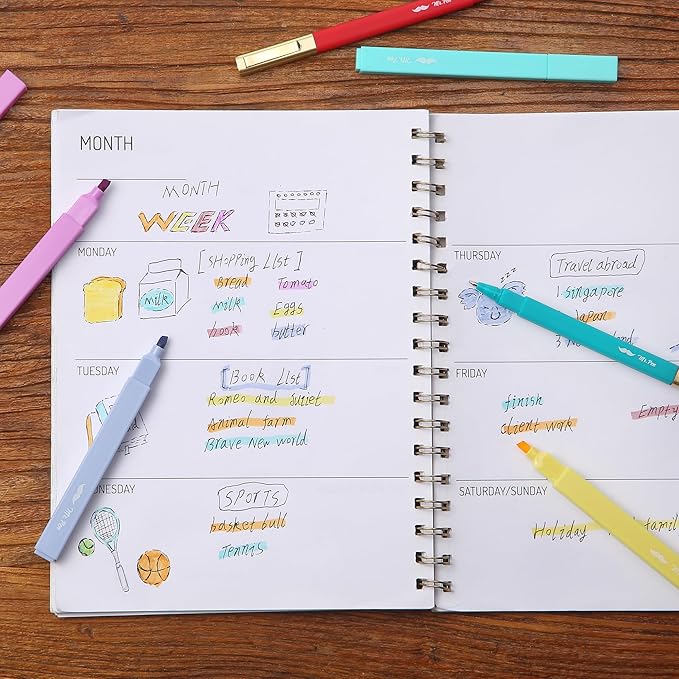 Mr. Pen
Mr. Pen
MONTH
MONTH
WEEK
MONDAY
[Shopping List]
Bread Tomato
milk Eggs
book butter
milk
TUESDAY
[Book List]
Romeo and Juliet
Animal farm
Brave New world
NESDAY
SPORTS
basket ball
Tennis
THURSDAY
Travel abroad
1. Singapore
Japan
3
zzz
FRIDAY
finish
client work
Empty
SATURDAY/SUNDAY
Holiday famil
Mr. Pen
Mr. Pen
Mr. Pen